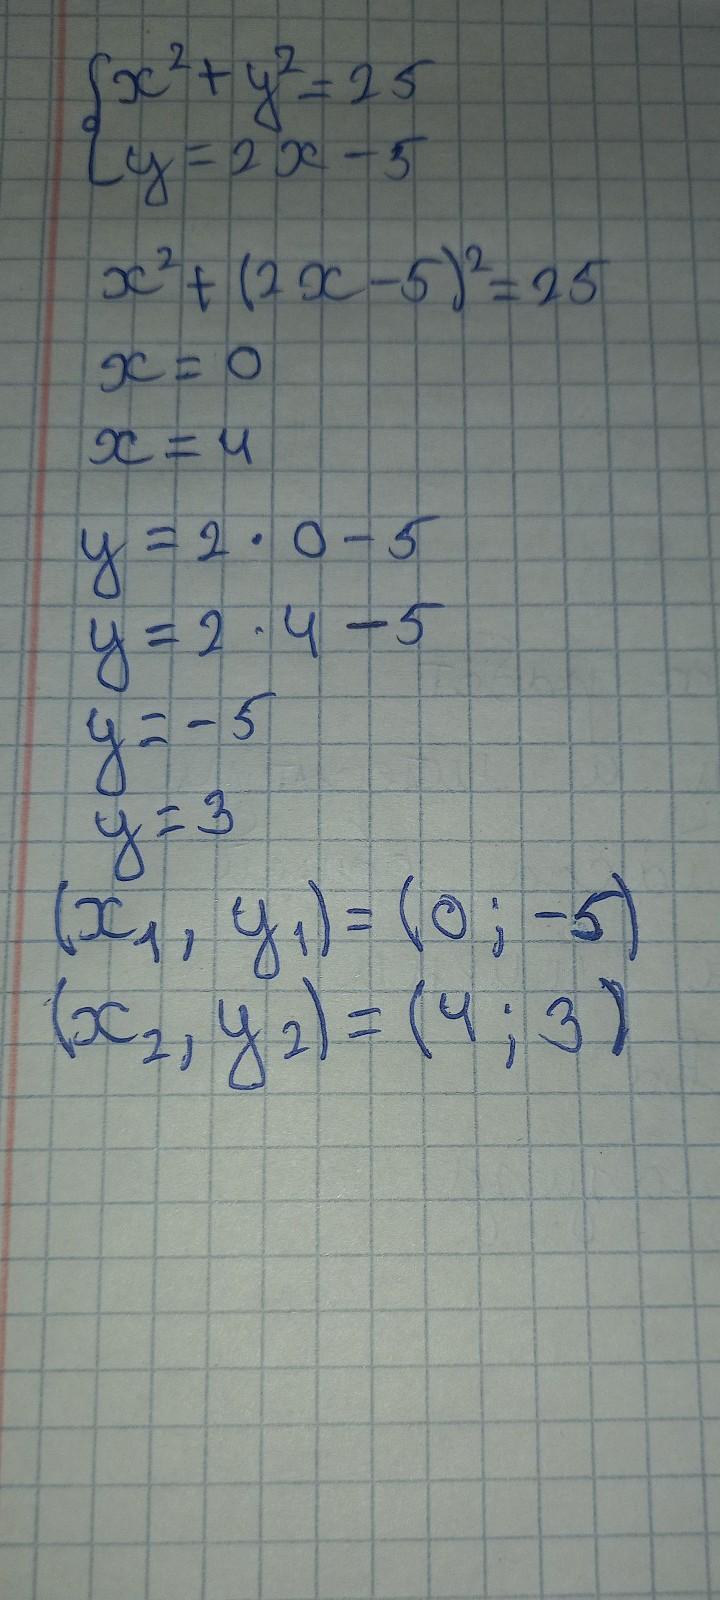 x² + y² = 25
y = 2x - 5
x² + (2x - 5)² = 25
x = 0
x = 4
y = 2 · 0 - 5
y = 2 · 4 - 5
y = -5
y = 3
(x₁, y₁) = (0; -5)
(x₂, y₂) = (4; 3)